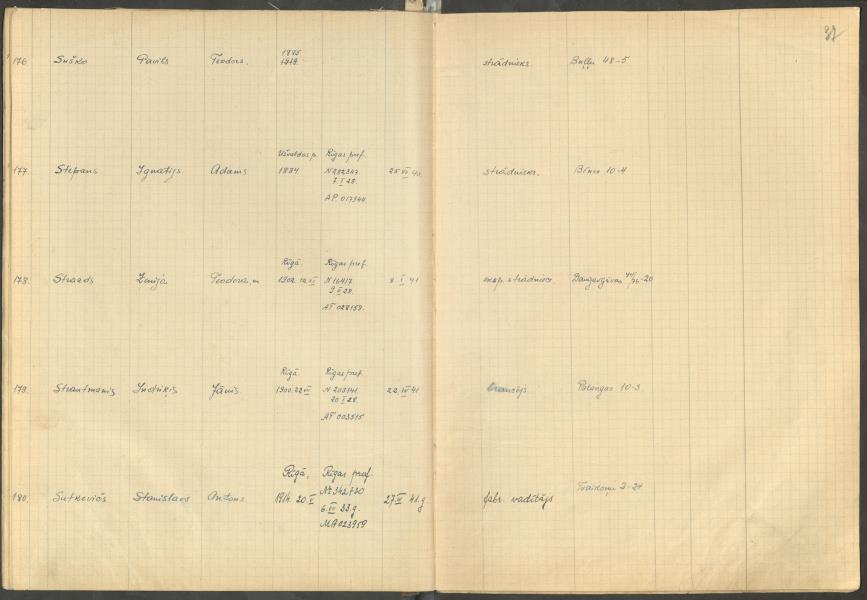 32
176. Suško Pavils Teodors. 1895 1919. strādnieks. Buļļu 48-5
177. Stepans Ignatijs Adams 1884 Rīgas pref. N 282347 7.I 28. AP 017944 25 VI 40 strādnieks. 10-4
178. Strazds Teodora m Rīgā 1902 12 VI Rīgas pref. N 16417 9.II 28. AP 028159. 8 I 41 strādniece
179. Strautmanis Indriķis Jānis Rīgā 1900. 22 VII Rīgas pref. N 203141 20 I 28. AP 003515 22 IV 41 Palangas 10-3
180. Sutkevičs Stanislavs Antons Rīgā, 1914. 20. V Rīgas pref. № 342730 6. VII 33.g. MA 023959 27 VI 41.g fabr. vadītājs 2-24